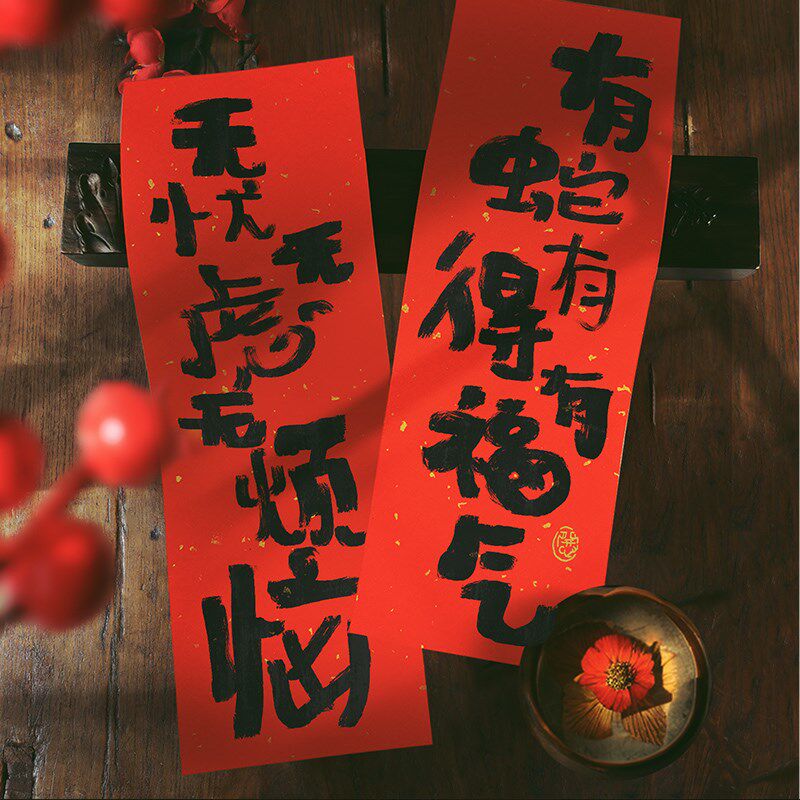 有蛇有得有福气
无忧无虑无烦恼